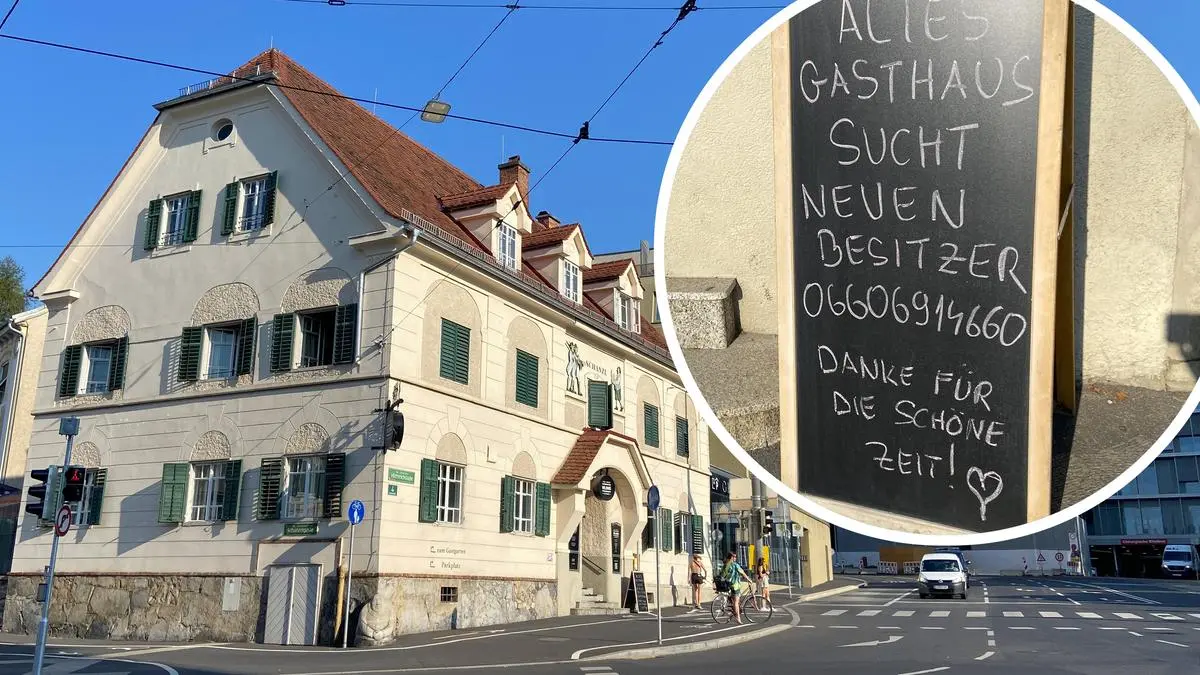 ALTES
GASTHAUS
SUCHT
NEUEN
BESITZER
06606914660
DANKE FÜR
DIE SCHÖNE
ZEIT!
SCHANZL
zum Gastgarten
Parkplatz